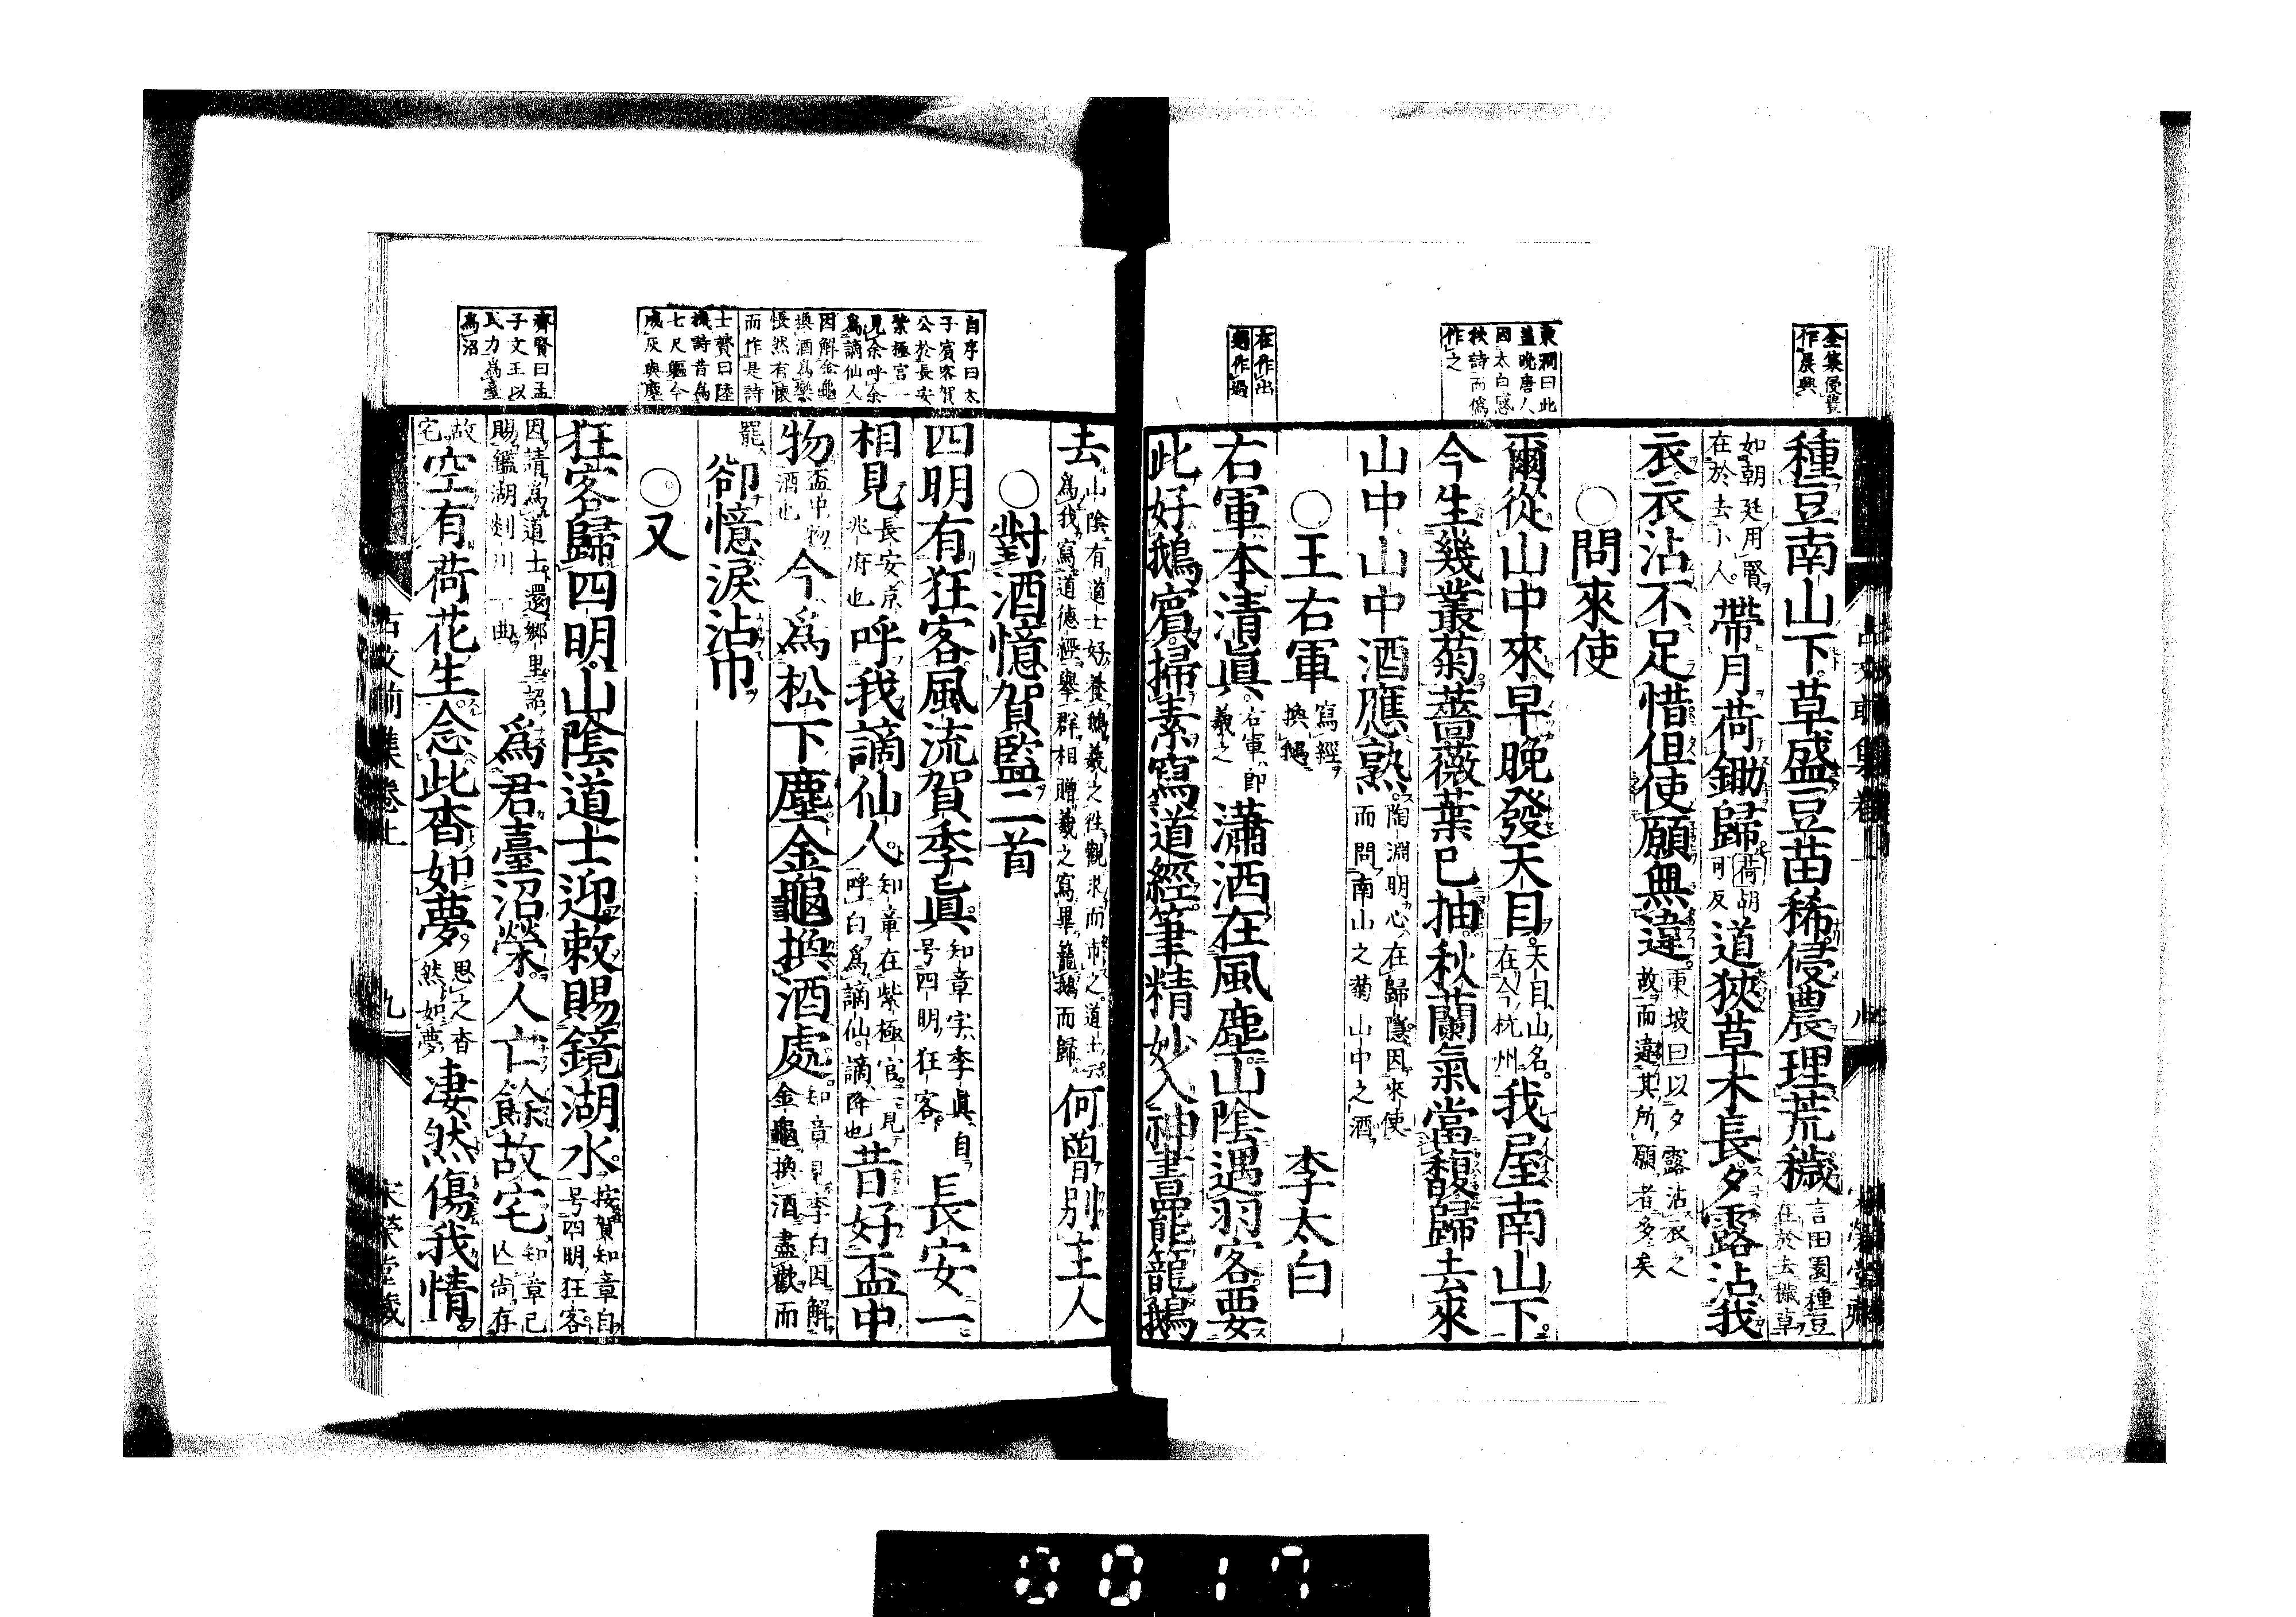 全集侵農
作晨興
種豆南山下草盛豆苗稀侵農理荒穢言田園種豆在於去穢草
如朝廷用賢在於去小人帶月荷鋤歸荷胡可反道狹草木長夕露沾我
衣衣沾不足惜但使願無違東坡曰以夕露沾衣之故而違其所願者多矣
○問來使
東澗曰此
盖晚唐人
因太白感
秋詩而僞
作之
爾從山中來早晚發天目天目山名在今杭州我屋南山下
今生幾叢菊薔薇葉已抽秋蘭氣當馥歸去來
山中山中酒應熟陶淵明心在歸隱因來使而問南山之菊山中之酒
○王右軍寫經換鵝 李太白
在作出
遇作過
右軍本清眞右軍即羲之瀟洒在風塵山陰遇羽客要
此好鵝賓掃素寫道經筆精妙入神書罷籠鵝
去山陰有道士好養鵝羲之徃觀求而市之道士云爲我寫道德經舉群相贈羲之寫畢籠鵝而歸何曾別主人
○對酒憶賀監二首
自序曰太
子賓客賀
公於長安
紫極宮一
見余呼余
爲謫仙人
因解金龜
換酒爲樂
悵然有懷
而作是詩
四明有狂客風流賀季眞知章字季眞自号四明狂客長安一
相見長安京兆府也呼我謫仙人知章在紫極宮一見呼白爲謫仙謫降也昔好盃中
物盃中物酒也今爲松下塵金龜換酒處知章見李白因解金龜換酒盡歡而
罷卻憶淚沾巾
士贇曰陸
機詩昔爲
七尺軀今
成灰與塵
○又
狂客歸四明山陰道士迎敕賜鏡湖水按賀知章自号四明狂客
因請爲道士還鄉里詔賜鑑湖剡川一曲爲君臺沼榮人亡餘故宅知章已亡尚存
齊賢曰孟
子文王以
民力爲臺
爲沼
故宅空有荷花生念此杳如夢思之杳然如夢凄然傷我情
古文前集卷上 九 宋榮堂藏